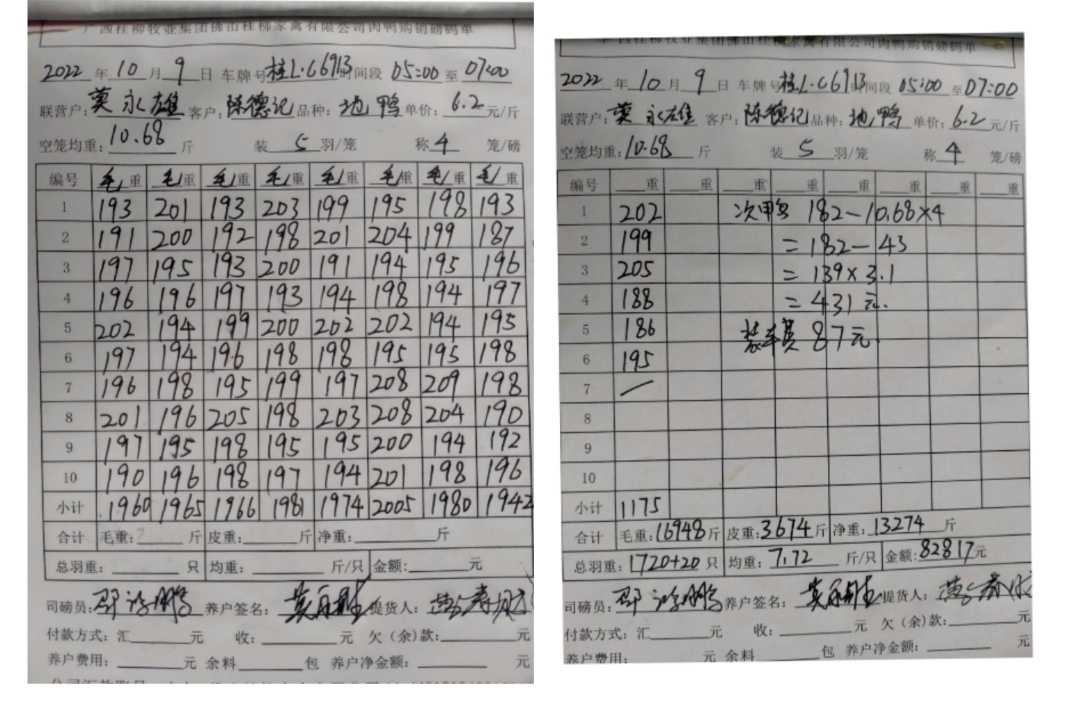 广西桂柳牧业集团佛山桂柳家禽有限公司肉鸭购销磅码单
2022 年 10 月 9 日 车牌号 桂L·C6913 时间段 05:00 至 07:00
联营户: 莫永雄 客户: 陈德记 品种: 地鸭 单价: 6.2 元/斤
空笼均重: 10.68 斤 装 5 羽/笼 称 4 笼/磅
编号 毛重 毛重 毛重 毛重 毛重 毛重 毛重 毛重
1 193 201 193 203 199 195 198 193
2 191 200 192 198 201 204 199 187
3 197 195 193 200 191 194 195 196
4 196 196 197 193 194 198 194 197
5 202 194 199 200 202 202 194 195
6 197 194 196 198 198 195 195 198
7 196 198 195 199 197 208 209 198
8 201 196 205 198 203 208 204 190
9 197 195 198 195 195 200 194 192
10 190 196 198 197 194 201 198 196
小计 1960 1965 1966 1981 1974 2005 1980 1942
合计 毛重: 斤 皮重: 斤 净重: 斤
总羽重: 只 均重: 斤/只 金额: 元
司磅员: 养户签名: 提货人:
付款方式: 汇 元 收: 元 欠(余)款: 元
养户费用: 元 余料 包 养户净金额: 元
广西桂柳牧业集团佛山桂柳家禽有限公司肉鸭购销磅码单
2022 年 10 月 9 日 车牌号 桂L·C6913 时间段 05:00 至 07:00
联营户: 莫永雄 客户: 陈德记 品种: 地鸭 单价: 6.2 元/斤
空笼均重: 10.68 斤 装 5 羽/笼 称 4 笼/磅
编号 重 重 重 重 重 重 重 重
1 202 次鸭 182-10.68×4
2 199 =182-43
3 205 =139×3.1
4 188 =431元.
5 186 装车费 87元.
6 195
7
8
9
10
小计 1175
合计 毛重: 16948 斤 皮重: 3674 斤 净重: 13274 斤
总羽重: 1720+20 只 均重: 7.72 斤/只 金额: 82817 元
司磅员: 养户签名: 提货人:
付款方式: 汇 元 收: 元 欠(余)款: 元
养户费用: 元 余料 包 养户净金额: 元